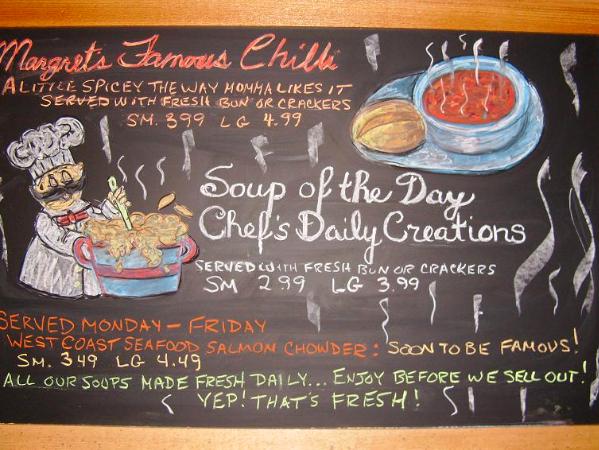 Margret's Famous Chilli
A LITTLE SPICEY THE WAY MOMMA LIKES IT
SERVED WITH FRESH BUN OR CRACKERS
SM. 3.99 LG 4.99
Soup of the Day
Chef's Daily Creations
SERVED WITH FRESH BUN OR CRACKERS
SM 2.99 LG 3.99
SERVED MONDAY - FRIDAY
WEST COAST SEAFOOD SALMON CHOWDER: SOON TO BE FAMOUS!
SM. 3.49 LG 4.49
ALL OUR SOUPS MADE FRESH DAILY... ENJOY BEFORE WE SELL OUT!
YEP! THAT'S FRESH!